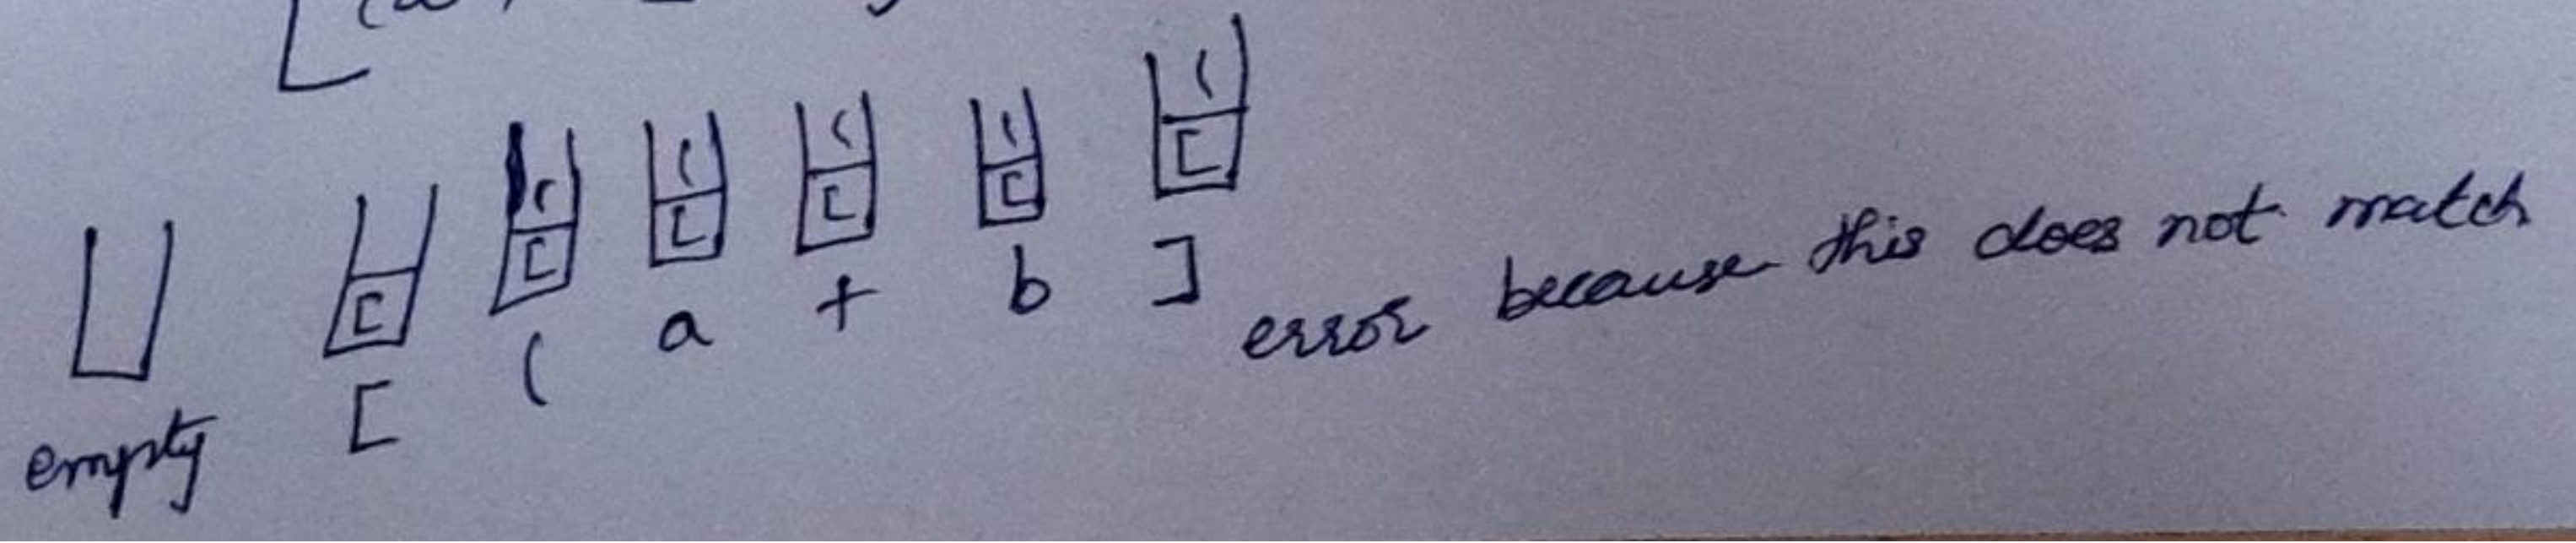 ( ( ( ( (
[ [ [ [ [ [
empty [ ( a + b ] error because this does not match